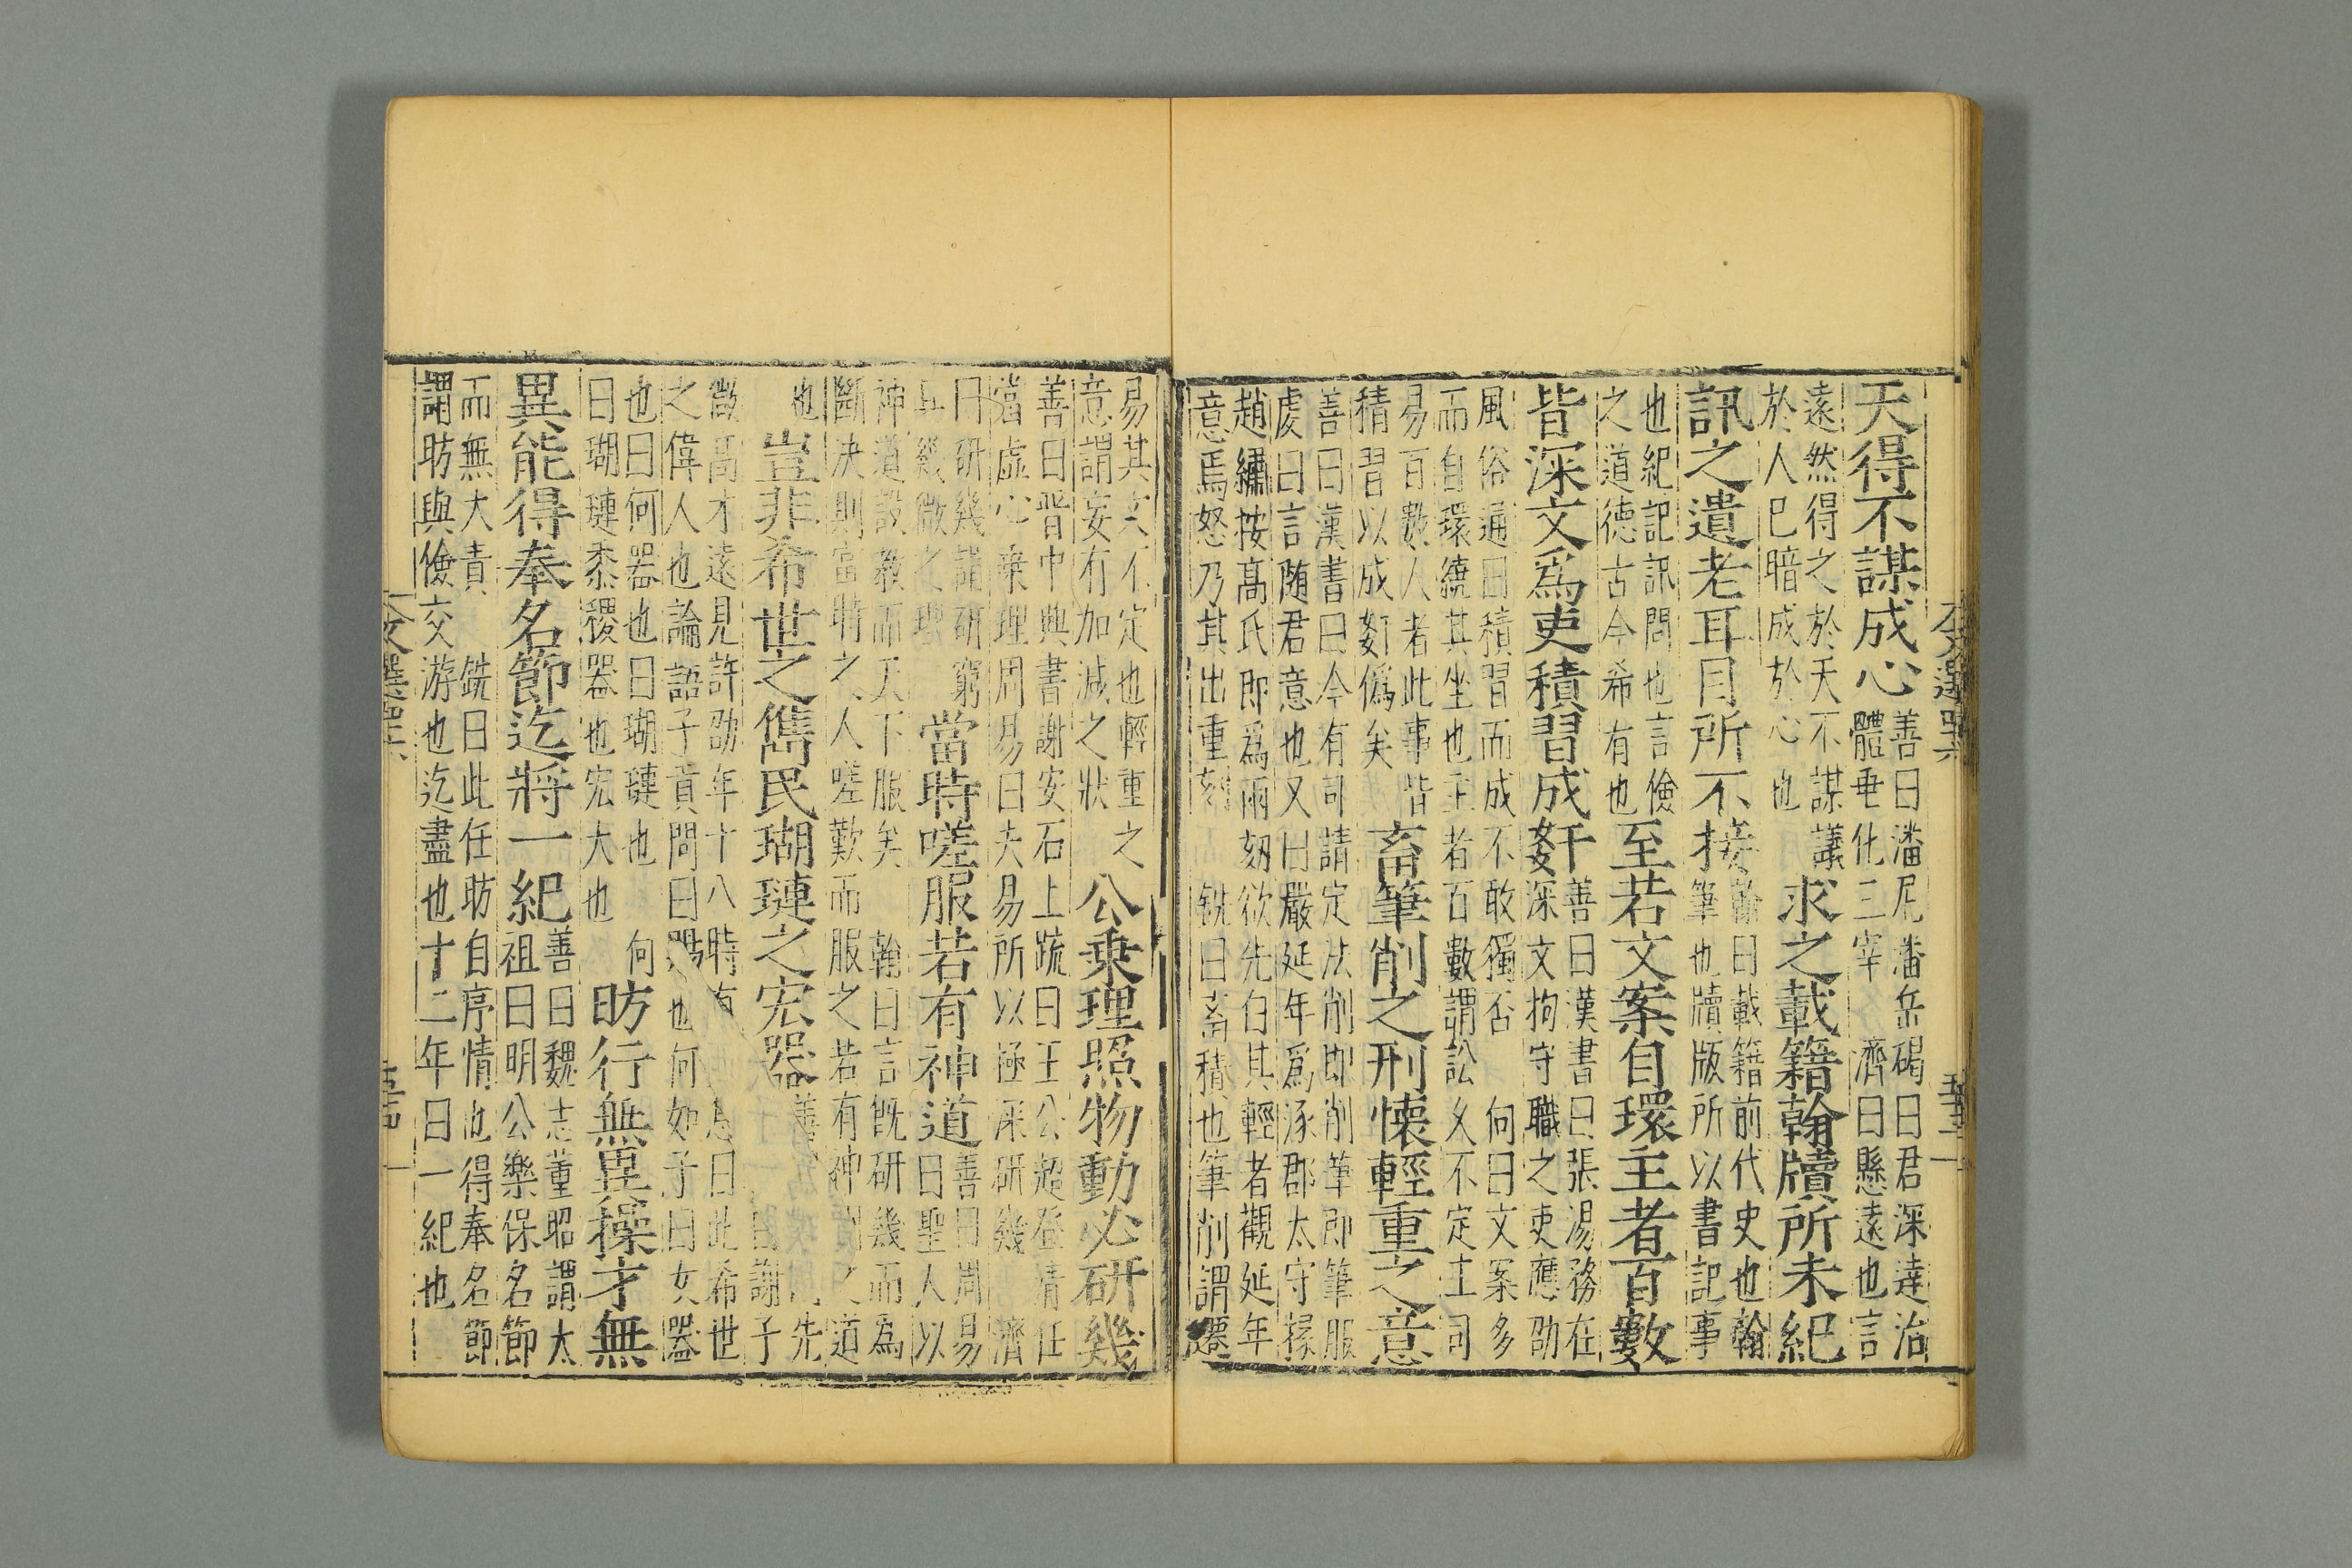 天得不謀成心善曰潘尼潘岳碣曰君深達治
體垂化三宰 濟曰懸遠也言
遠然得之於天不謀議
於人已暗成於心也
求之載籍翰牘所未紀
訊之遺老耳目所不接翰曰載籍前代史也翰
筆也牘版所以書記事
也紀記訊問也言儉
之道德古今希有也
至若文案自環主者百數
皆深文爲吏積習成姧善曰漢書曰張湯務在
深文拘守職之吏應劭
風俗通曰積習而成不敢獨否 向曰文案多
而自環繞其坐也主者百數謂訟文不定主司
易百數人者此事皆
積習以成姧僞矣
畜筆削之刑懷輕重之意
善曰漢書曰今有司請定法削即削筆即筆服
虔曰言随君意也又曰嚴延年爲涿郡太守掾
趙繡按高氏即爲兩劾欲先白其輕者觀延年
意焉怒乃其出重劾 銑曰畜積也筆削謂遷
易其文不定也輕重之
意謂妄有加減之狀
公乗理照物動必研幾
善曰晋中興書謝安石上疏曰王公超登清任
當虛心乗理周易曰夫易所以極深研幾 濟
曰研幾謂研窮
幾微之理
當時嗟服若有神道善曰周易
曰聖人以
神道設教而天下服矣 翰曰言旣研幾而爲
斷決則當時之人嗟歎而服之若有神明之道
也
豈非希世之雋民瑚璉之宏器善
謝子
微高才遠見許劭年十八時有 曰此希世
之偉人也論語子貢問曰賜也何如子曰女器
也曰何器也曰瑚璉也 向
曰瑚璉黍稷器也宏大也
昉行無異操才無
異能得奉名節迄將一紀善曰魏志董昭謂太
祖曰明公樂保名節
而無大責 銑曰此任昉自序情也得奉名節
謂昉與儉交游也迄盡也十二年曰一紀也